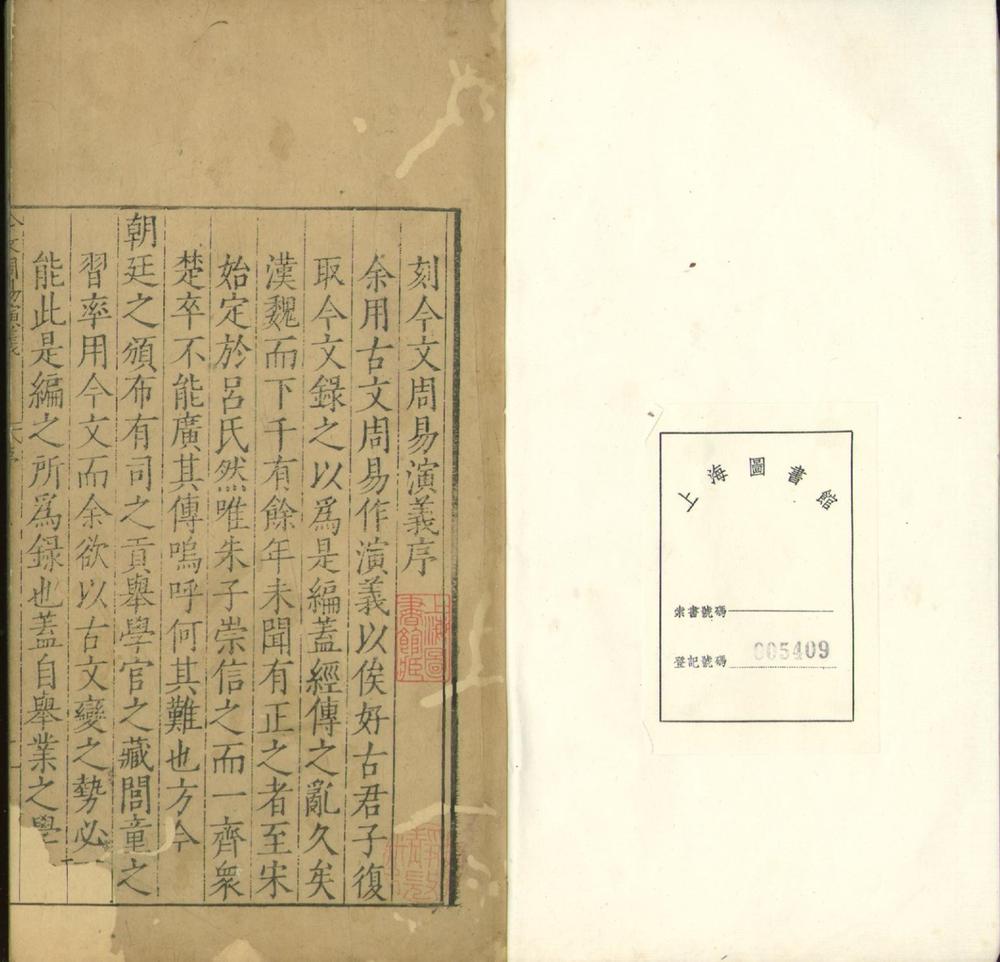 上海圖書館
索書號碼
登記號碼 005409
刻今文周易演義序
余用古文周易作演義以俟好古君子復
取今文錄之以爲是編蓋經傳之亂久矣
漢魏而下千有餘年未聞有正之者至宋
始定於呂氏然唯朱子崇信之而一齊衆
楚卒不能廣其傳嗚呼何其難也方今
朝廷之頒布有司之貢舉學官之藏閭童之
習率用今文而余欲以古文變之勢必
能此是編之所爲録也蓋自舉業之學